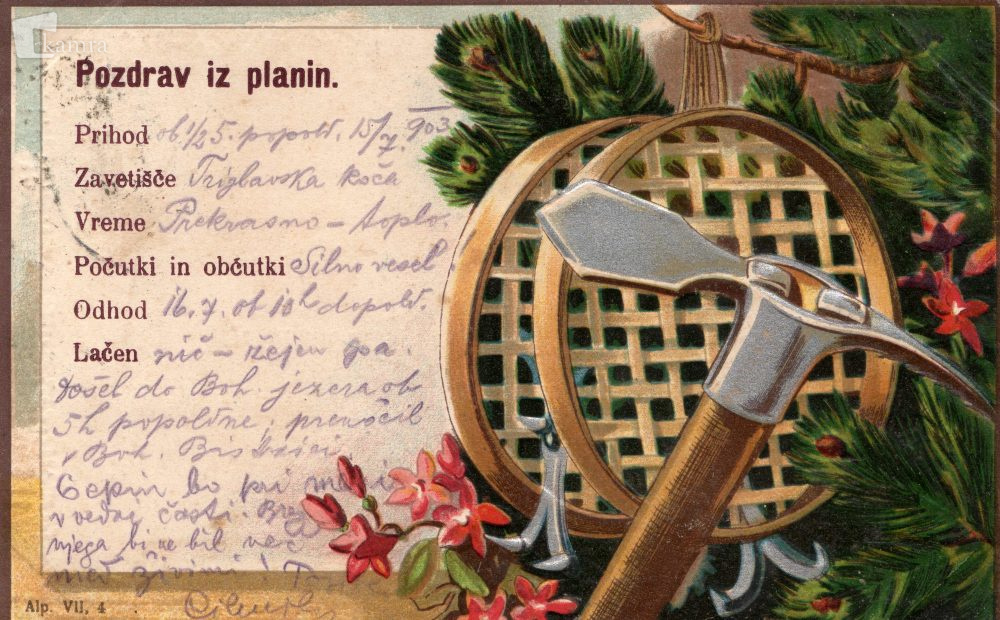 kamra
Pozdrav iz planin.
Prihod ob 1/2 5. popold. 15/7. 903
Zavetišče Triglavska koča
Vreme Prekrasno – toplo.
Počutki in občutki Silno vesel.
Odhod 16.7. ob 10h dopold.
Lačen nič – žejen pa.
Došel do Boh. jezera ob
5h popoldne, prenočil
v Boh. Bistrici
Cepin bo pri meni
vedno časti. Brez
njega bi ne bil več
med živimi!
Alp. VII, 4